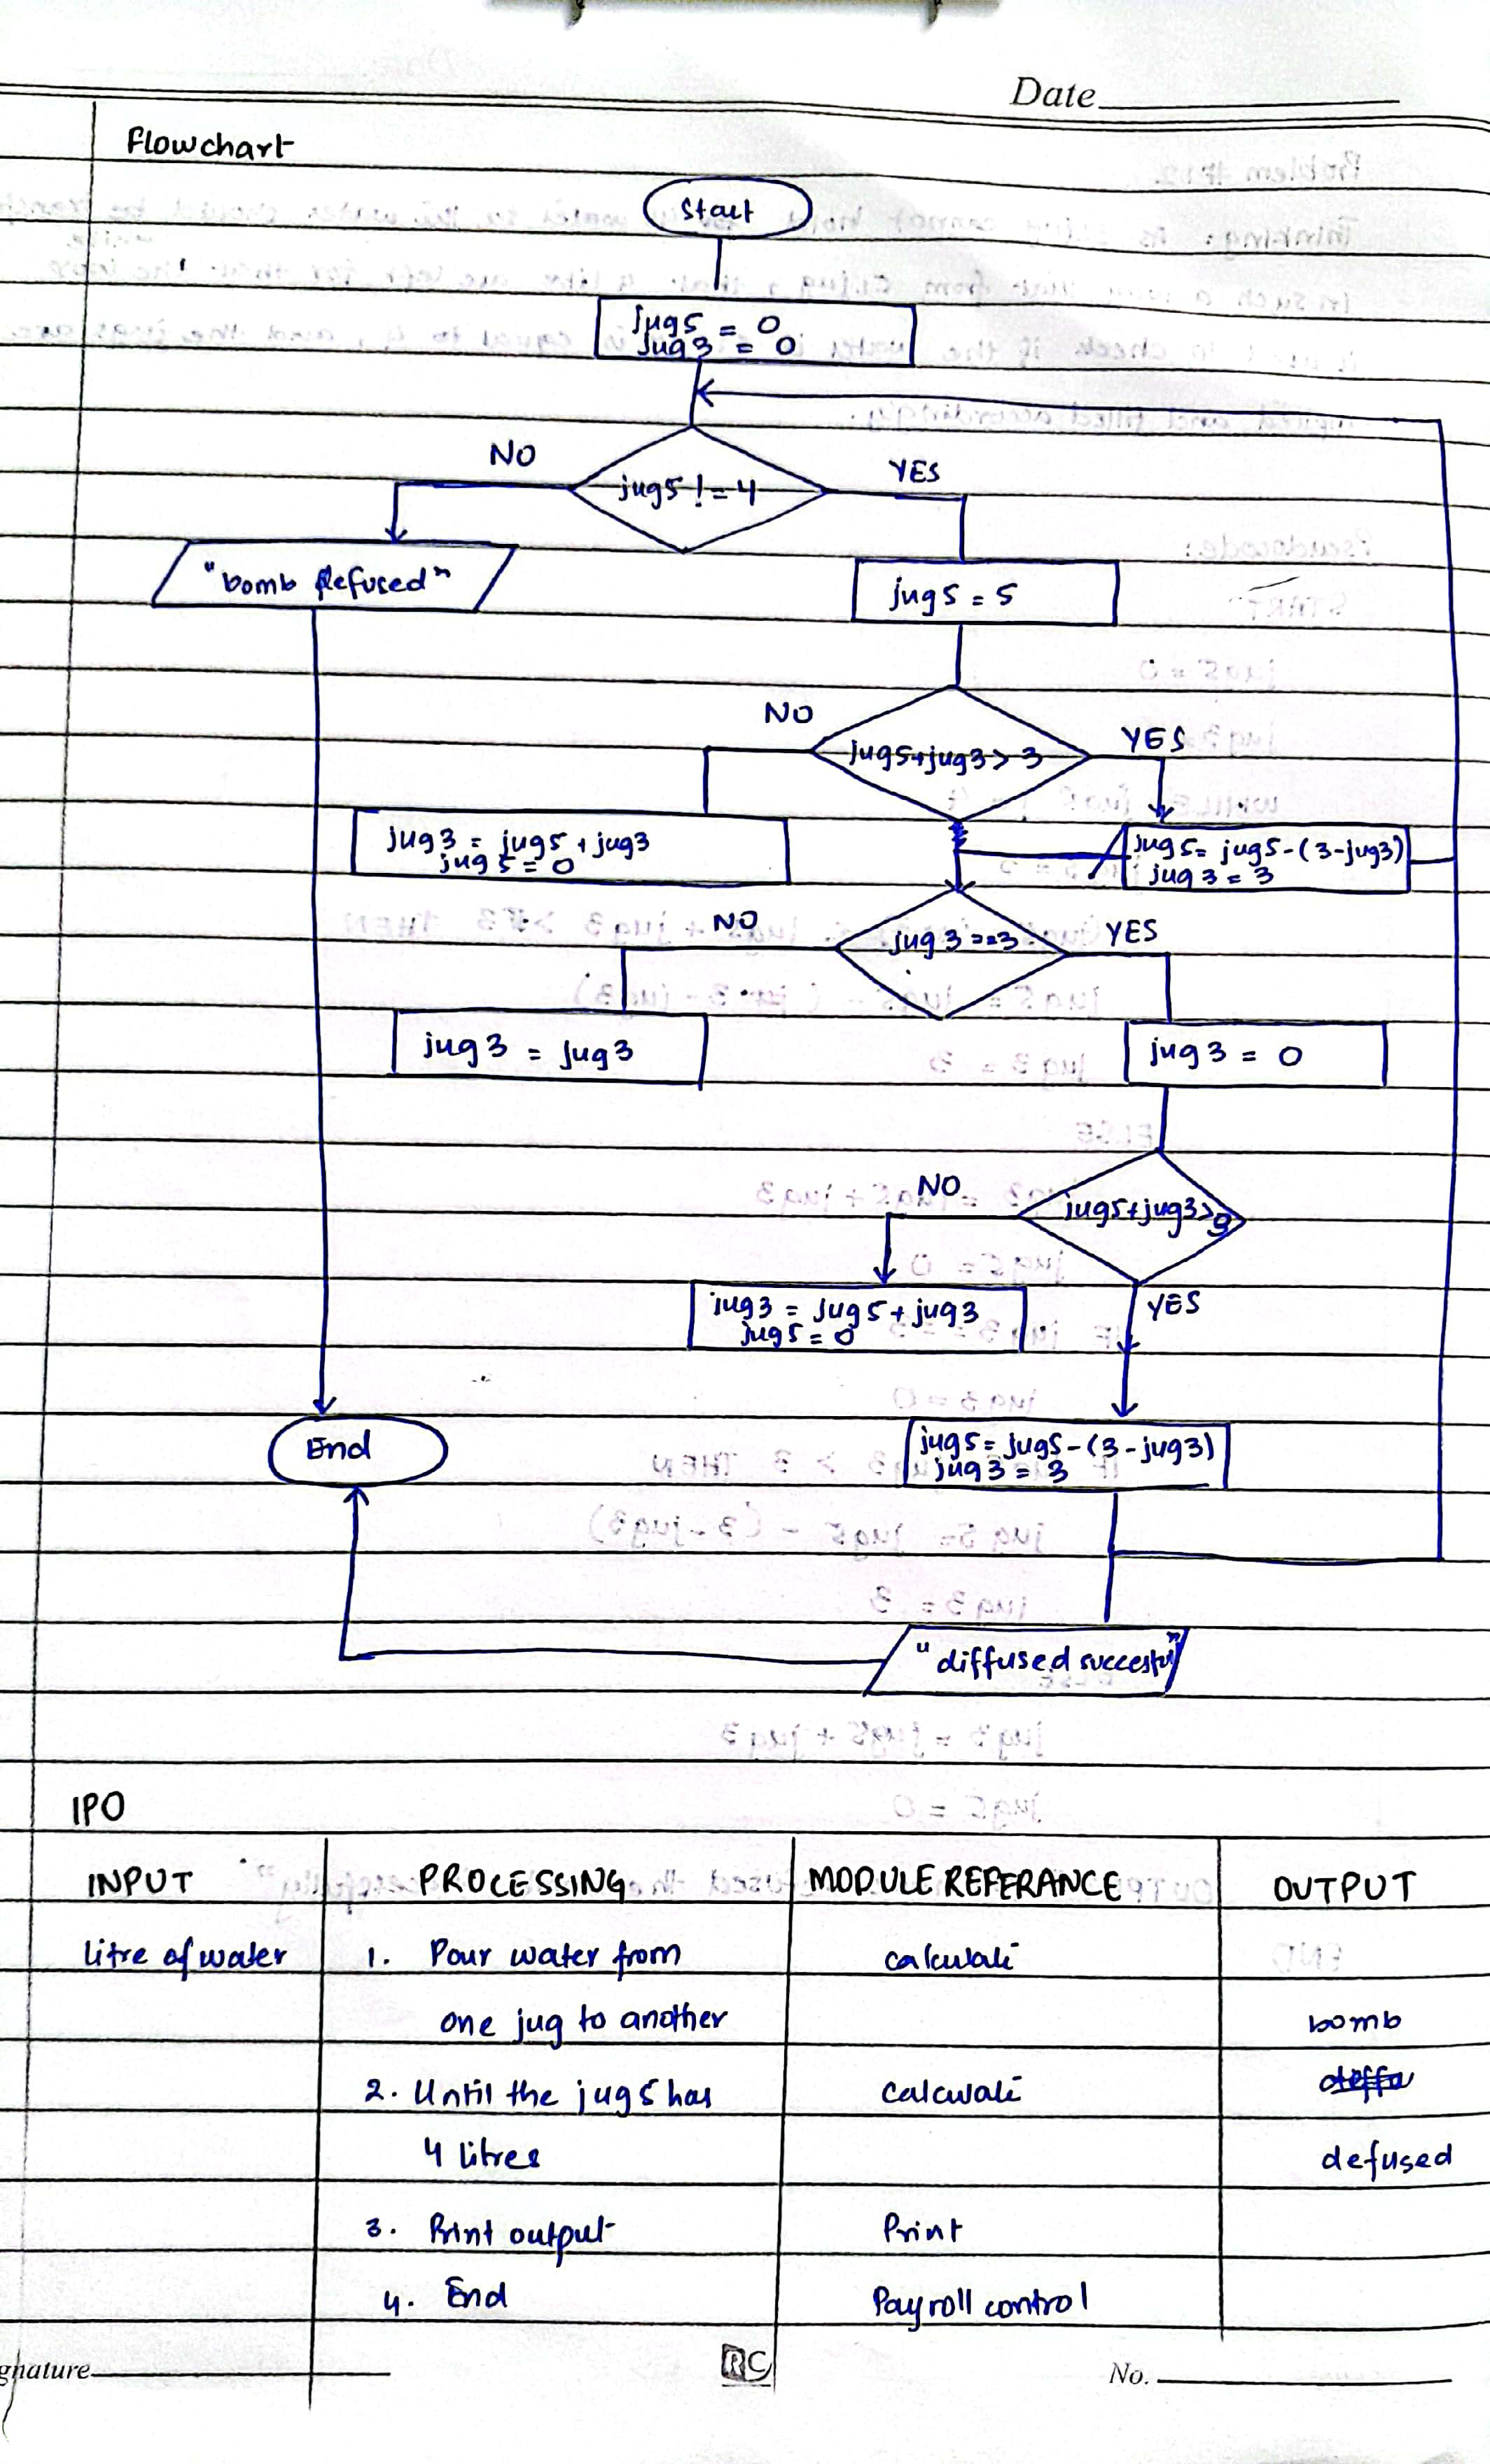 Date
Flowchart
Start
jug5 = 0
jug3 = 0
NO
jug5 != 4
YES
"bomb defused"
jug5 = 5
NO
jug5+jug3 > 3
YES
jug3 = jug5 + jug3
jug5 = 0
jug5 = jug5 - (3 - jug3)
jug3 = 3
NO
jug3 == 3
YES
jug3 = jug3
jug3 = 0
NO
jug5+jug3>3
YES
jug3 = jug5 + jug3
jug5 = 0
End
jug5 = jug5 - (3 - jug3)
jug3 = 3
"diffused succesful"
IPO
INPUT PROCESSING MODULE REFERANCE OUTPUT
litre of water 1. Pour water from calculate
one jug to another bomb
2. Until the jug5 has calculate
4 litres defused
3. Print output Print
4. End Payroll control
gnature RC No.